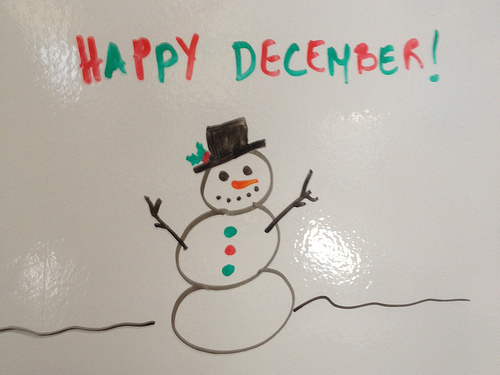 HAPPY DECEMBER!